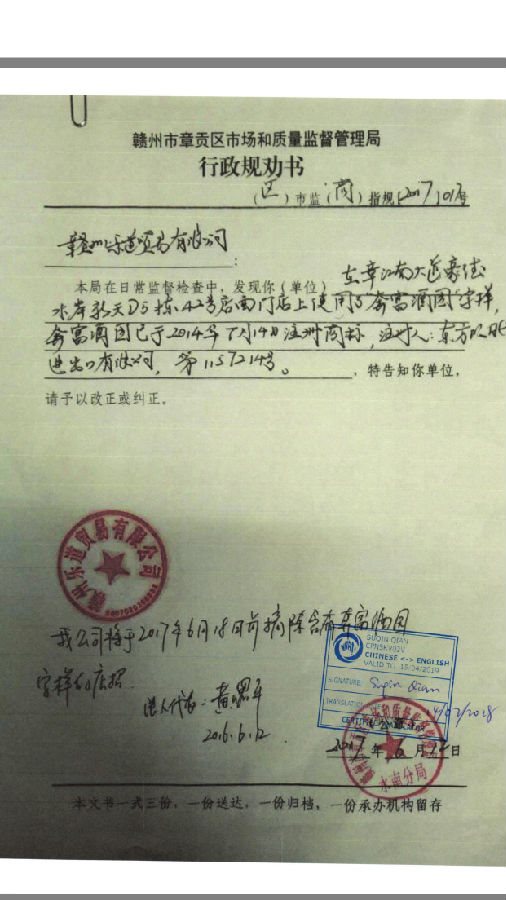 赣州市章贡区市场和质量监督管理局
行政规劝书
(区)市监(商)指规[2017]017号
赣州乐道贸易有限公司:
本局在日常监督检查中,发现你(单位)在章江南大道豪德
水岸新天D5栋42号店面门店上使用了奔富酒园字样,
奔富酒园已于2014年 月14日注册商标,注册人:东方
进出口有限公司,第11572149号。,特告知你单位,
请予以改正或纠正。
赣州乐道贸易有限公司
我公司将于2017年6月18日前摘除含有奔富酒园
字样的店招
法人代表:黄
2016.6.12
SUQIN QIAN
CHINESE <-> ENGLISH
VALID TO: 15/04/2019
SIGNATURE: Suqin Qian
TRANSLATION
2017年6月 日
水南分局
本文书一式三份,一份送达,一份归档,一份承办机构留存